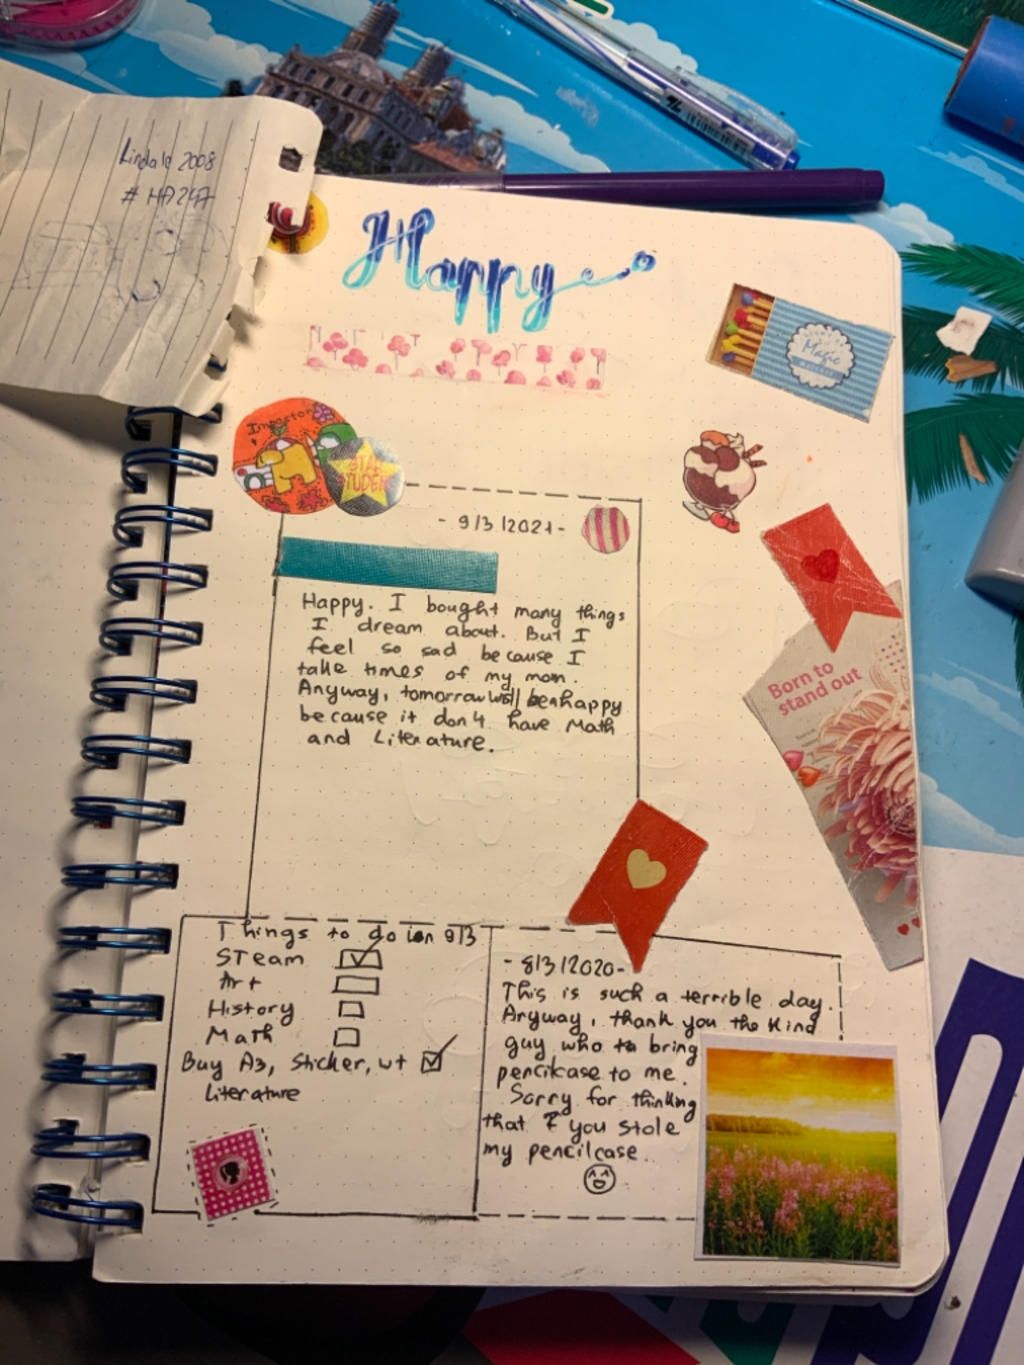 Lindale 2008
# HA247
Happy
Impostor
STAR
STUDENT
Magic
- 9/3/2021 -
Happy. I bought many things
I dream about. But I
feel so sad because I
take times of my mom.
Anyway, tomorrow will be happy
because it don't have Math
and Literature.
Born to
stand out
Things to do on 9/3
STeam
Art
History
Math
Buy A3, Sticker, wt
Literature
- 8/3/2020 -
This is such a terrible day.
Anyway, thank you the kind
guy who to bring
pencilcase to me.
Sorry for thinking
that you stole
my pencilcase.